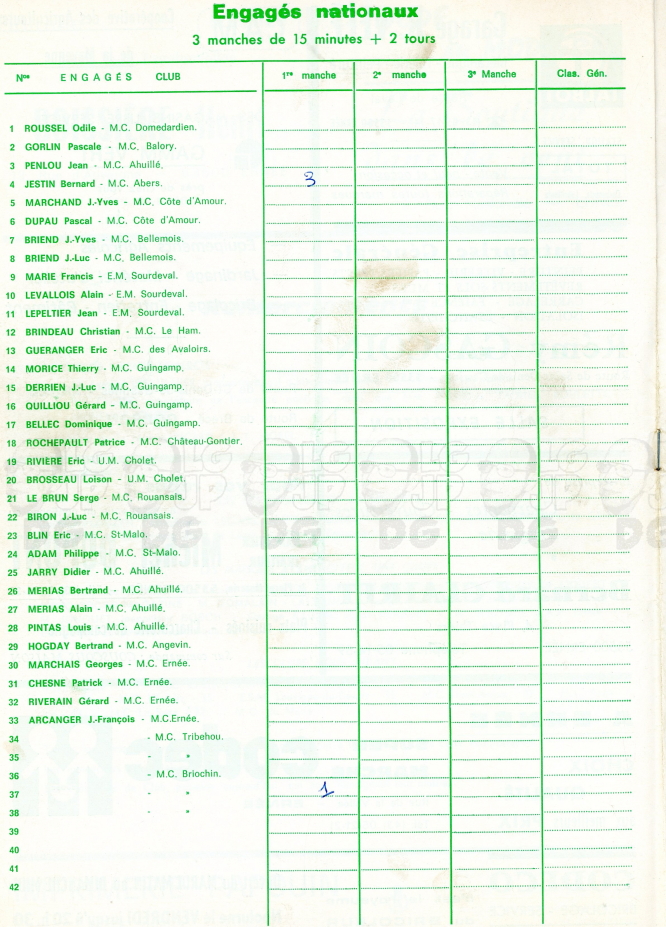 Engagés nationaux
3 manches de 15 minutes + 2 tours
Nos ENGAGÉS CLUB 1re manche 2e manche 3e Manche Clas. Gén.
1 ROUSSEL Odile - M.C. Domedardien.
2 GORLIN Pascale - M.C. Balory.
3 PENLOU Jean - M.C. Ahuillé.
4 JESTIN Bernard - M.C. Abers. 3
5 MARCHAND J.-Yves - M.C. Côte d'Amour.
6 DUPAU Pascal - M.C. Côte d'Amour.
7 BRIEND J.-Yves - M.C. Bellemois.
8 BRIEND J.-Luc - M.C. Bellemois.
9 MARIE Francis - E.M. Sourdeval.
10 LEVALLOIS Alain - E.M. Sourdeval.
11 LEPELTIER Jean - E.M. Sourdeval.
12 BRINDEAU Christian - M.C. Le Ham.
13 GUERANGER Eric - M.C. des Avaloirs.
14 MORICE Thierry - M.C. Guingamp.
15 DERRIEN J.-Luc - M.C. Guingamp.
16 QUILLIOU Gérard - M.C. Guingamp.
17 BELLEC Dominique - M.C. Guingamp.
18 ROCHEPAULT Patrice - M.C. Château-Gontier.
19 RIVIERE Eric - U.M. Cholet.
20 BROSSEAU Loison - U.M. Cholet.
21 LE BRUN Serge - M.C. Rouansais.
22 BIRON J.-Luc - M.C. Rouansais.
23 BLIN Eric - M.C. St-Malo.
24 ADAM Philippe - M.C. St-Malo.
25 JARRY Didier - M.C. Ahuillé.
26 MERIAS Bertrand - M.C. Ahuillé.
27 MERIAS Alain - M.C. Ahuillé.
28 PINTAS Louis - M.C. Ahuillé.
29 HOGDAY Bertrand - M.C. Angevin.
30 MARCHAIS Georges - M.C. Ernée.
31 CHESNE Patrick - M.C. Ernée.
32 RIVERAIN Gérard - M.C. Ernée.
33 ARCANGER J.-François - M.C.Ernée.
34 - M.C. Tribehou.
35 - "
36 - M.C. Briochin.
37 - " 1
38 - "
39
40
41
42
LG JP DG